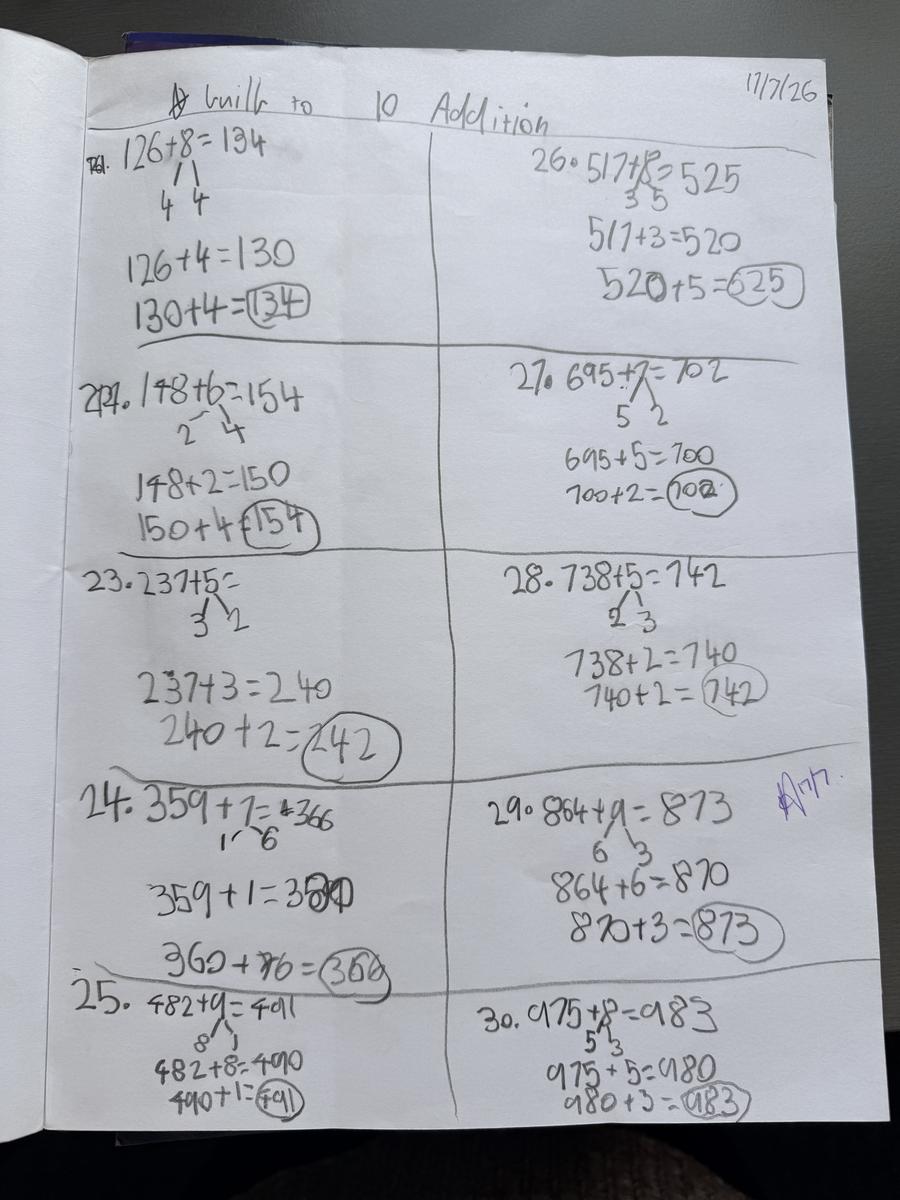 17/7/26
built to 10 Addition
126+8=134
4 4
126+4=130
130+4=134
148+6=154
2 4
148+2=150
150+4=154
23. 237+5=
3 2
237+3=240
240+2=242
24. 359+7=366
1 6
359+1=
360+6=366
25. 482+9=491
8 1
482+8=490
490+1=491
26. 517+8=525
3 5
517+3=520
520+5=625
27. 695+7=702
5 2
695+5=700
700+2=702
28. 738+5=742
2 3
738+2=740
740+2=742
29. 864+9=873
6 3
864+6=870
870+3=873
30. 975+8=983
5 3
975+5=980
980+3=983